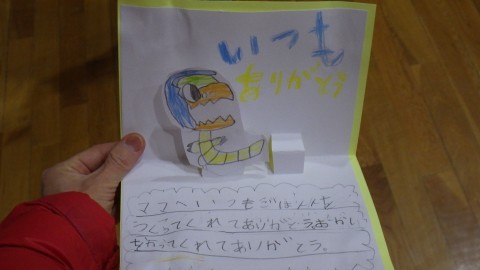 いつも
ありがとう
ママへいつもごはんを
つくってくれてありがとう。おかし
をかってくれてありがとう。